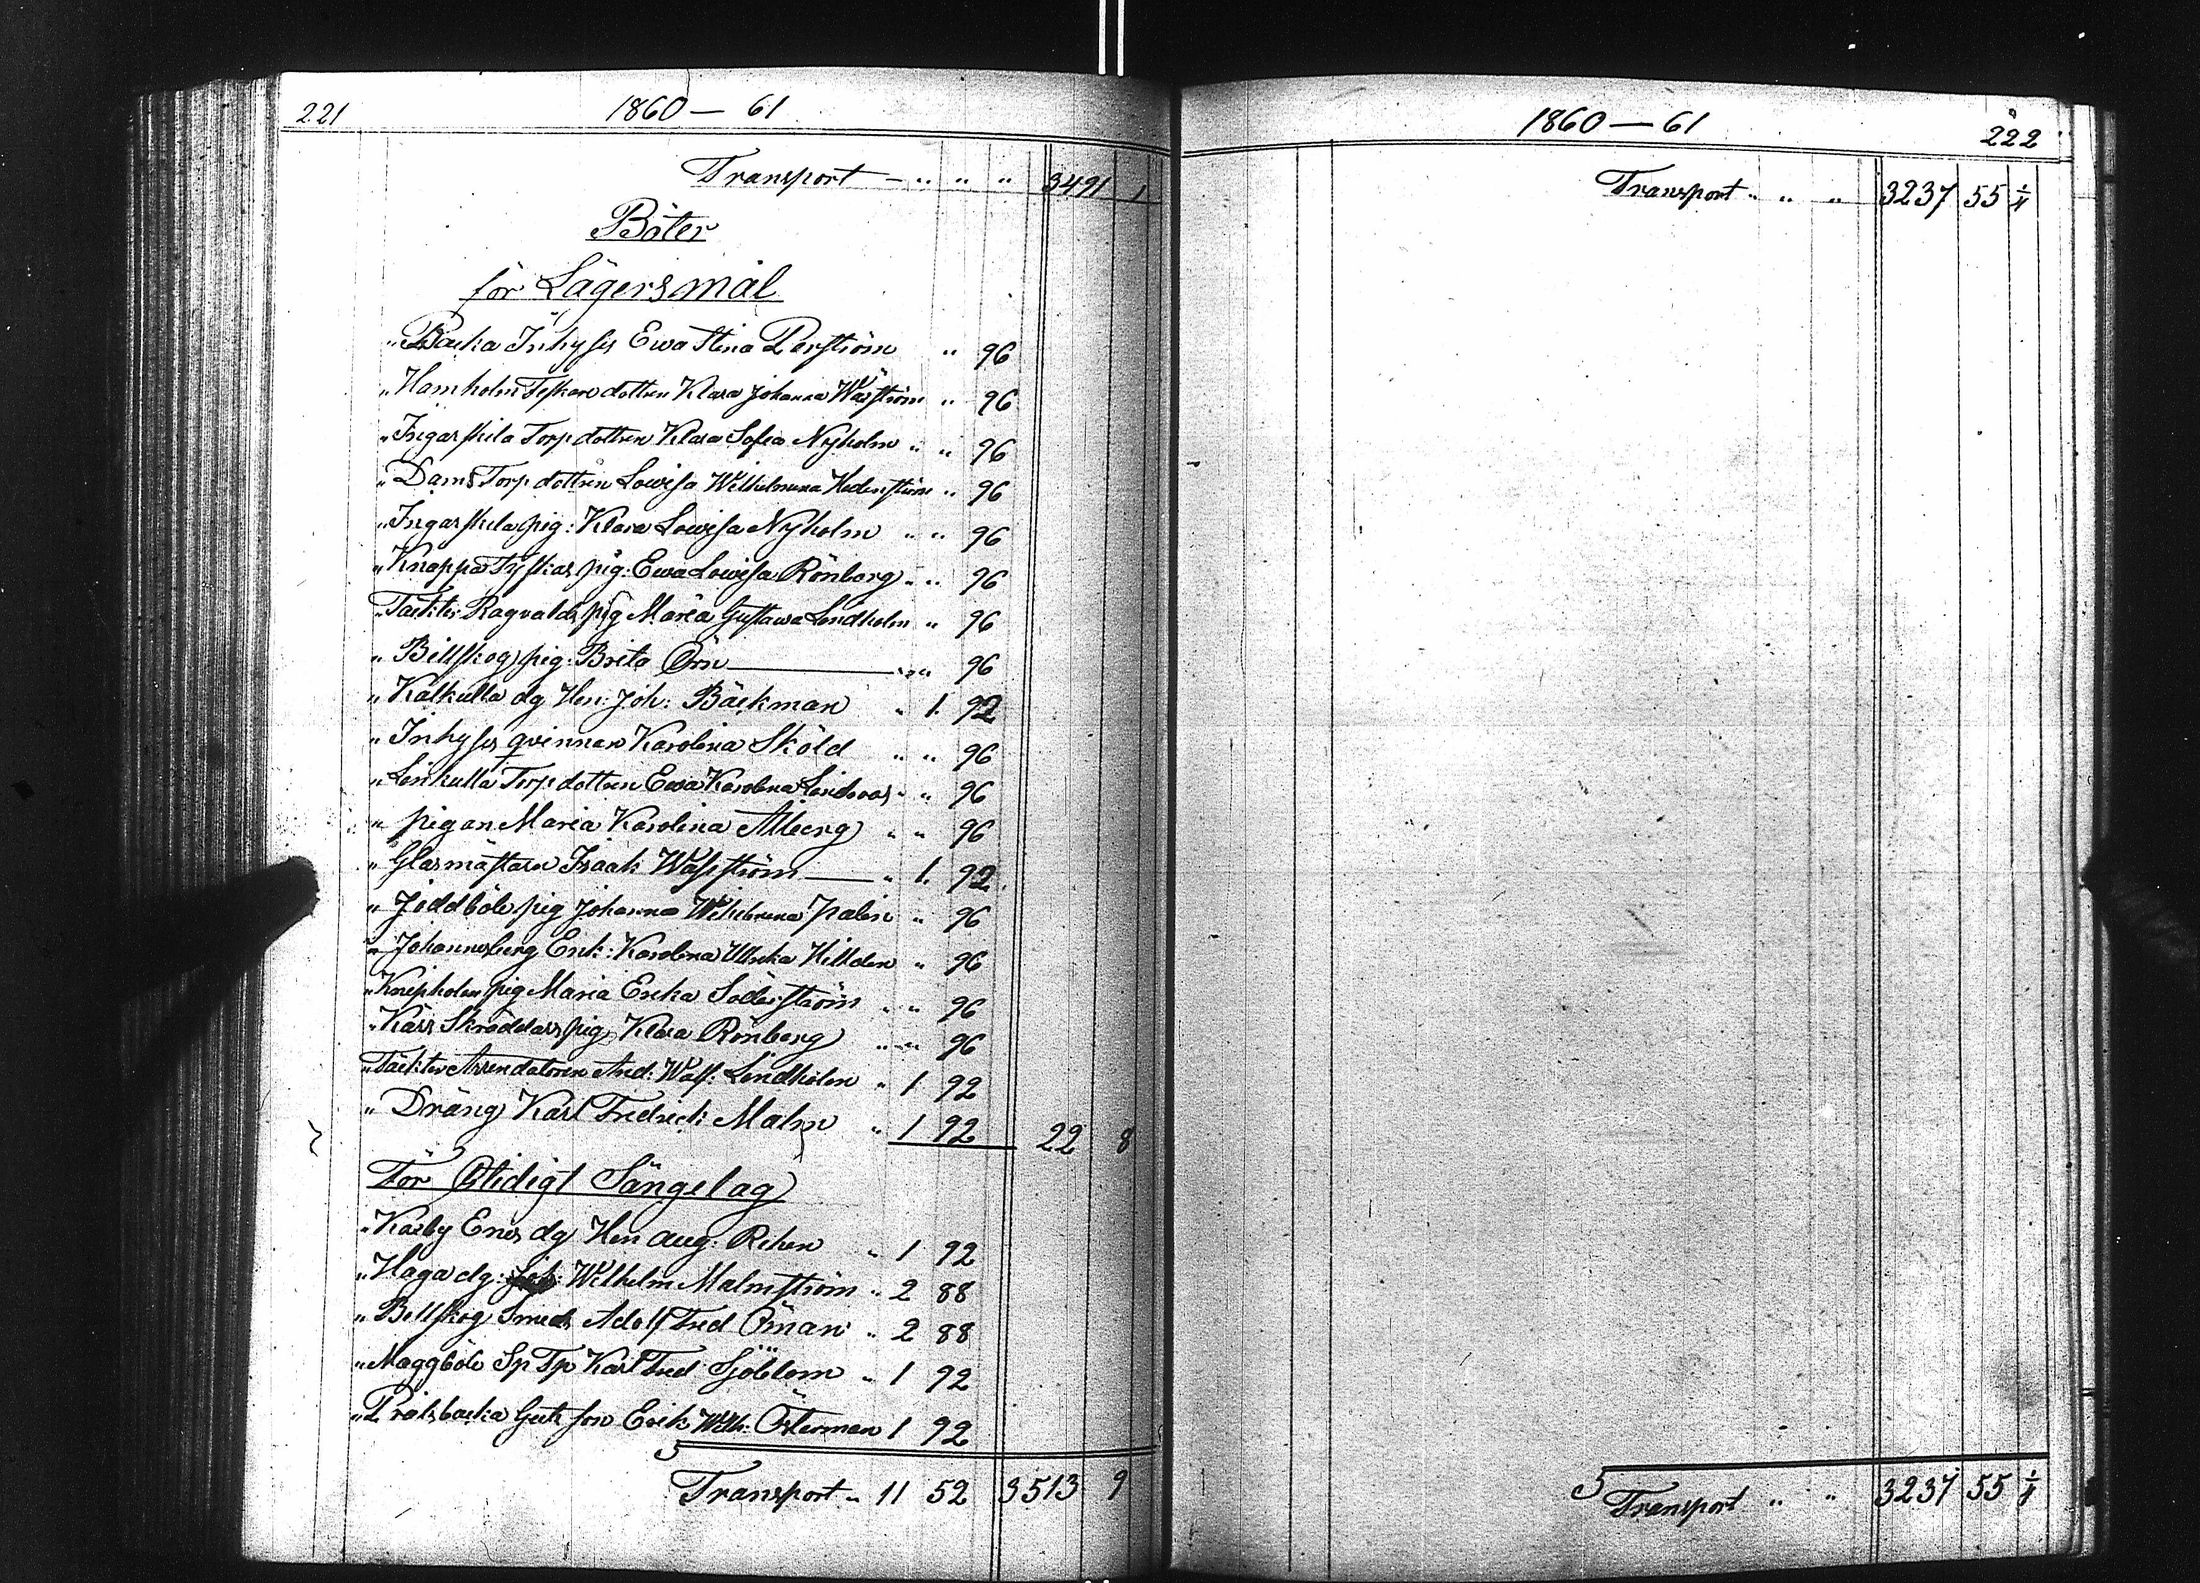 221 1860 — 61
Transport — " " " 3491 1
Böter
för Lägersmål
" Backa Inhyses Ewa Stina Perström " 96
" Hamholm Fiskare dottren Klara Johanna Wäström " 96
" Ingarskila Torp dottren Klara Sofia Nyholm " " 96
" Dams Torp dottren Lowisa Wilhelmina Hedenström " 96
" Ingarskila pig: Klara Lowisa Nyholm " " 96
" Knappas Tyskas pig: Ewa Lowisa Rönberg " " 96
" Täckter Ragvalds pig Maria Gustawa Lindholm " 96
" Billskog pig: Brita Örn " " 96
" Kalkulla dg Hen: Joh: Bäckman " 1. 92
" Inhyses qvinnan Karolina Sköld " " 96
" Linkulla Torp dottren Ewa Karolina Lindroos " " 96
" pigan Maria Karolina Alberg " " 96
" Glasmästaren Isaak Wasström " 1. 92.
" Joddböle pig Johanna Wilhelmina Palin " 96
" Johannesberg Enk: Karolina Ulrika Hillden " 96
" Knipholm pig Maria Erika Söderström " " 96
" Kärr Skräddars pig Klara Rönberg " " 96
" Täckter Arrendatoren And: Walf: Lindholm " 1 92
" Dräng Karl Fredrick Malm " 1 92 22 8
För Otidigt Sängelag
" Karby Eners dg Hen Aug: Rehn " 1 92
" Haga dg: Wilhelm Malmström " 2 88
" Billskog Smeds Adolf Fred Öman " 2 88
" Maggböle Sp Tp Karl Fred Sjöblom " 1 92
" Prålsbacka Gert son Erik Wilh: Österman 1 92
Transport " 11 52 3513 9
1860 — 61 222
Transport " " " 3237 55 1/4
Transport " " 3237 55 1/4